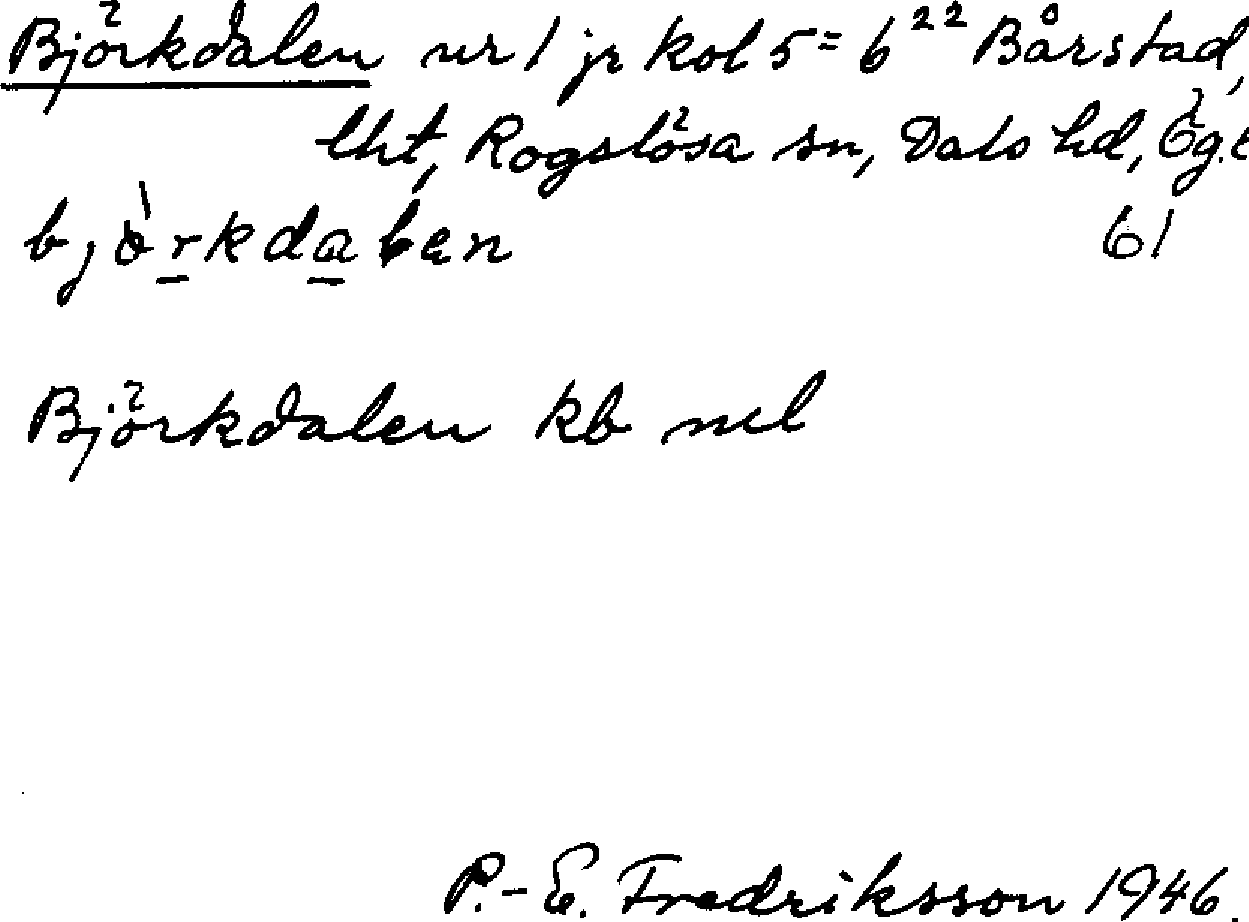 Björkdalen nr 1 jr kol 5 = 6²² Bårstad,
lht, Rogslösa sn, Dals hd, Ög.l
bjö̀rkdaɫen 61
Björkdalen kb nul
P.-E. Fredriksson 1946.